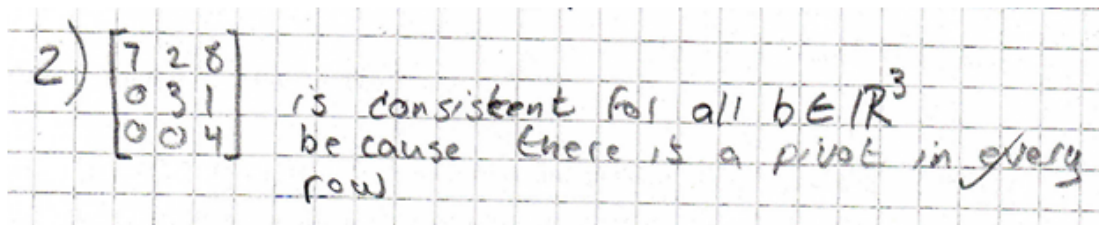 2) [7 2 8
0 3 1
0 0 4]
is consistent for all b ∈ ℝ³
because there is a pivot in every
row